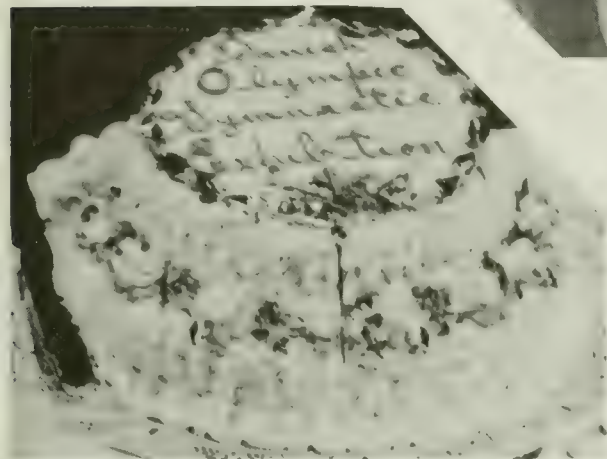 Danish
Olympic
Gymnastic
Exhibition